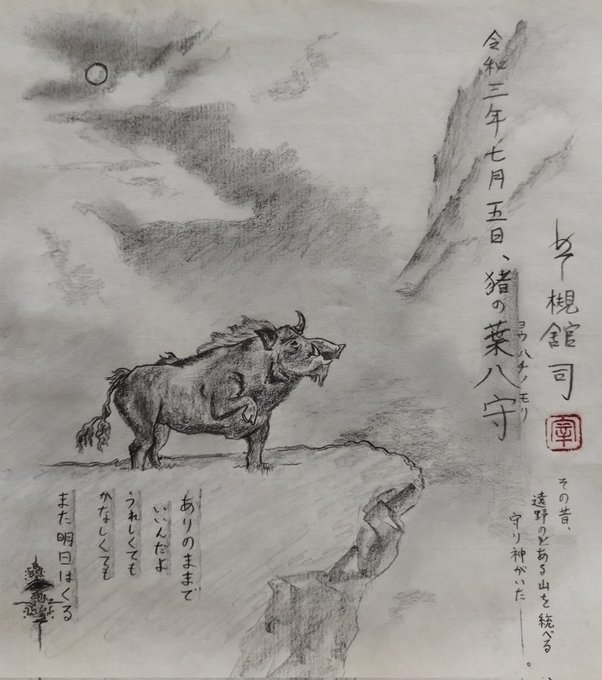 槻館司
令和三年七月五日、猪の葉八守
ヨウハチノモリ
その昔、
遠野のとある山を統べる
守り神がいた――。
ありのままで
いいんだよ
うれしくても
かなしくても
また明日はくる